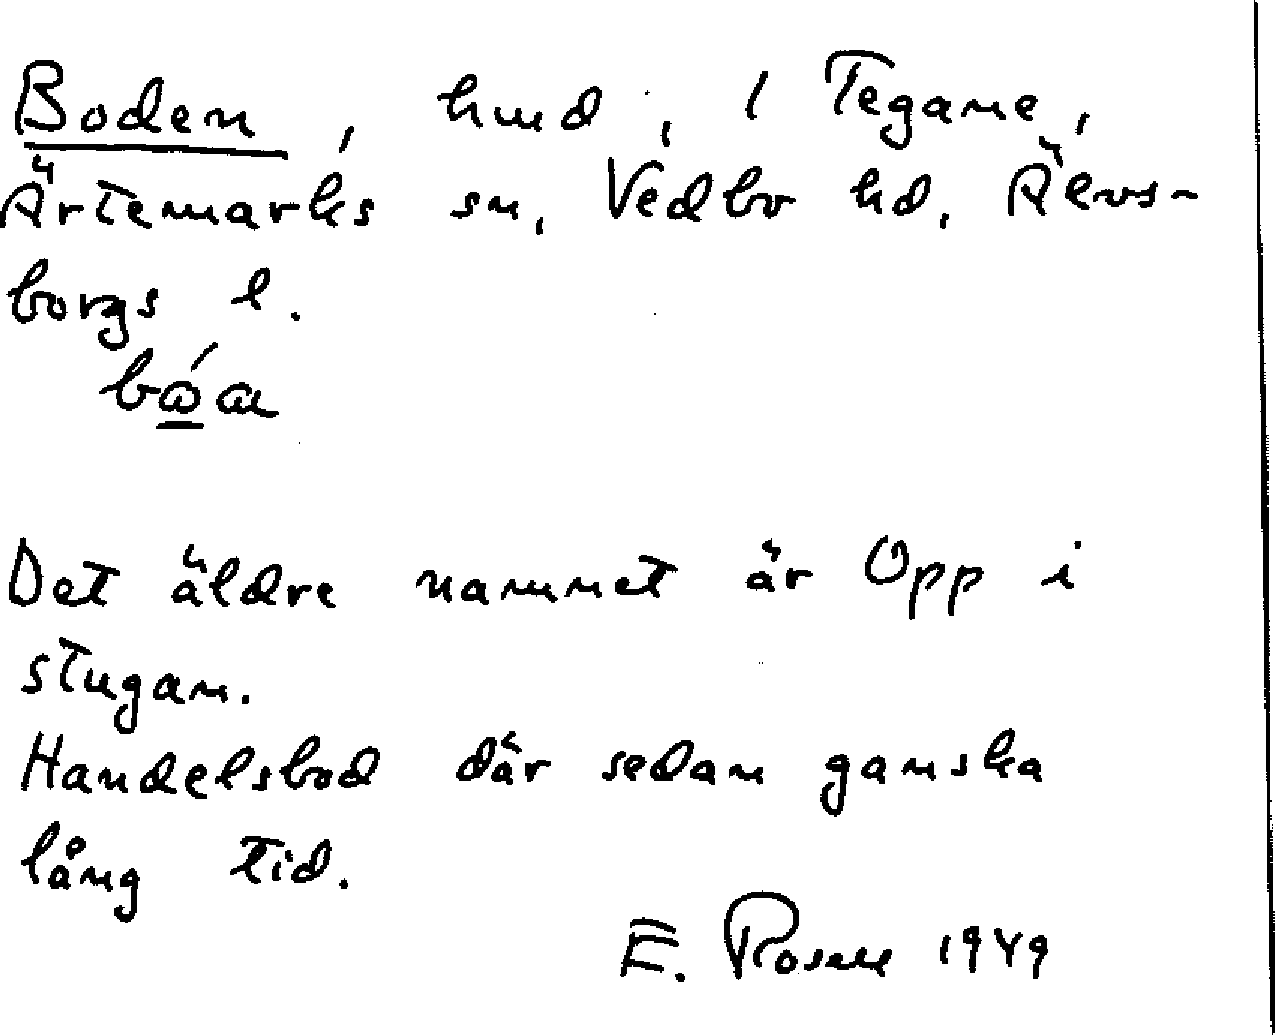 Boden, hmd, i Tegane,
Ärtemarks sn, Vedbo hd, Älvs-
borgs l.
Det äldre namnet är Opp i
stugan.
Handelsbod där sedan ganska
lång tid.
E. Rosell 1949